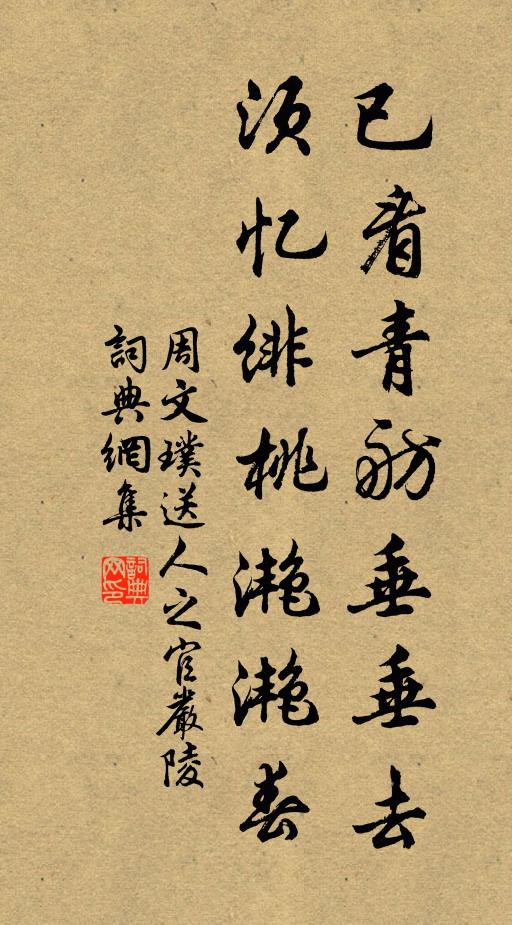 已看青舫垂垂去
须忆绯桃滟滟春
周文璞送人之官嚴陵
詞典網集
詞典网印